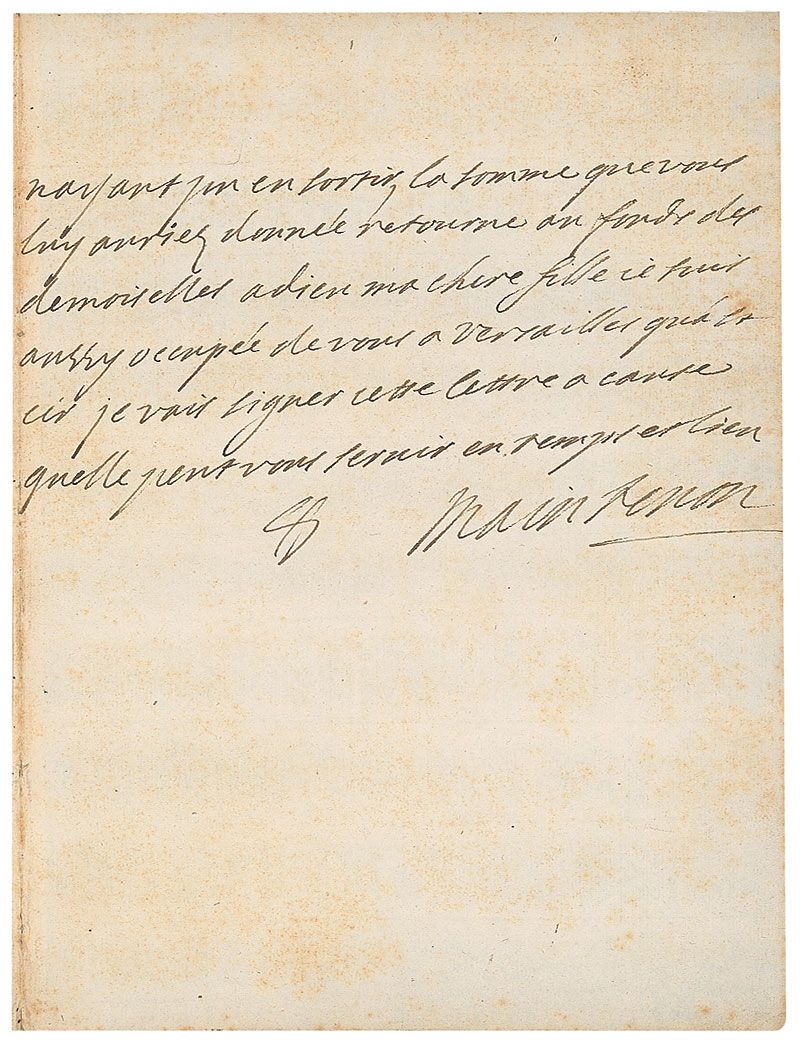 nayant pu en sortir, la somme que vous
luy auriez donnée retourne au fonds des
demoiselles adieu ma chere fille ie suis
aussy occupée de vous a versailles qu'a st
cir je vais signer cette lettre a cause
quelle peut vous servir en temps et lieu
Maintenon